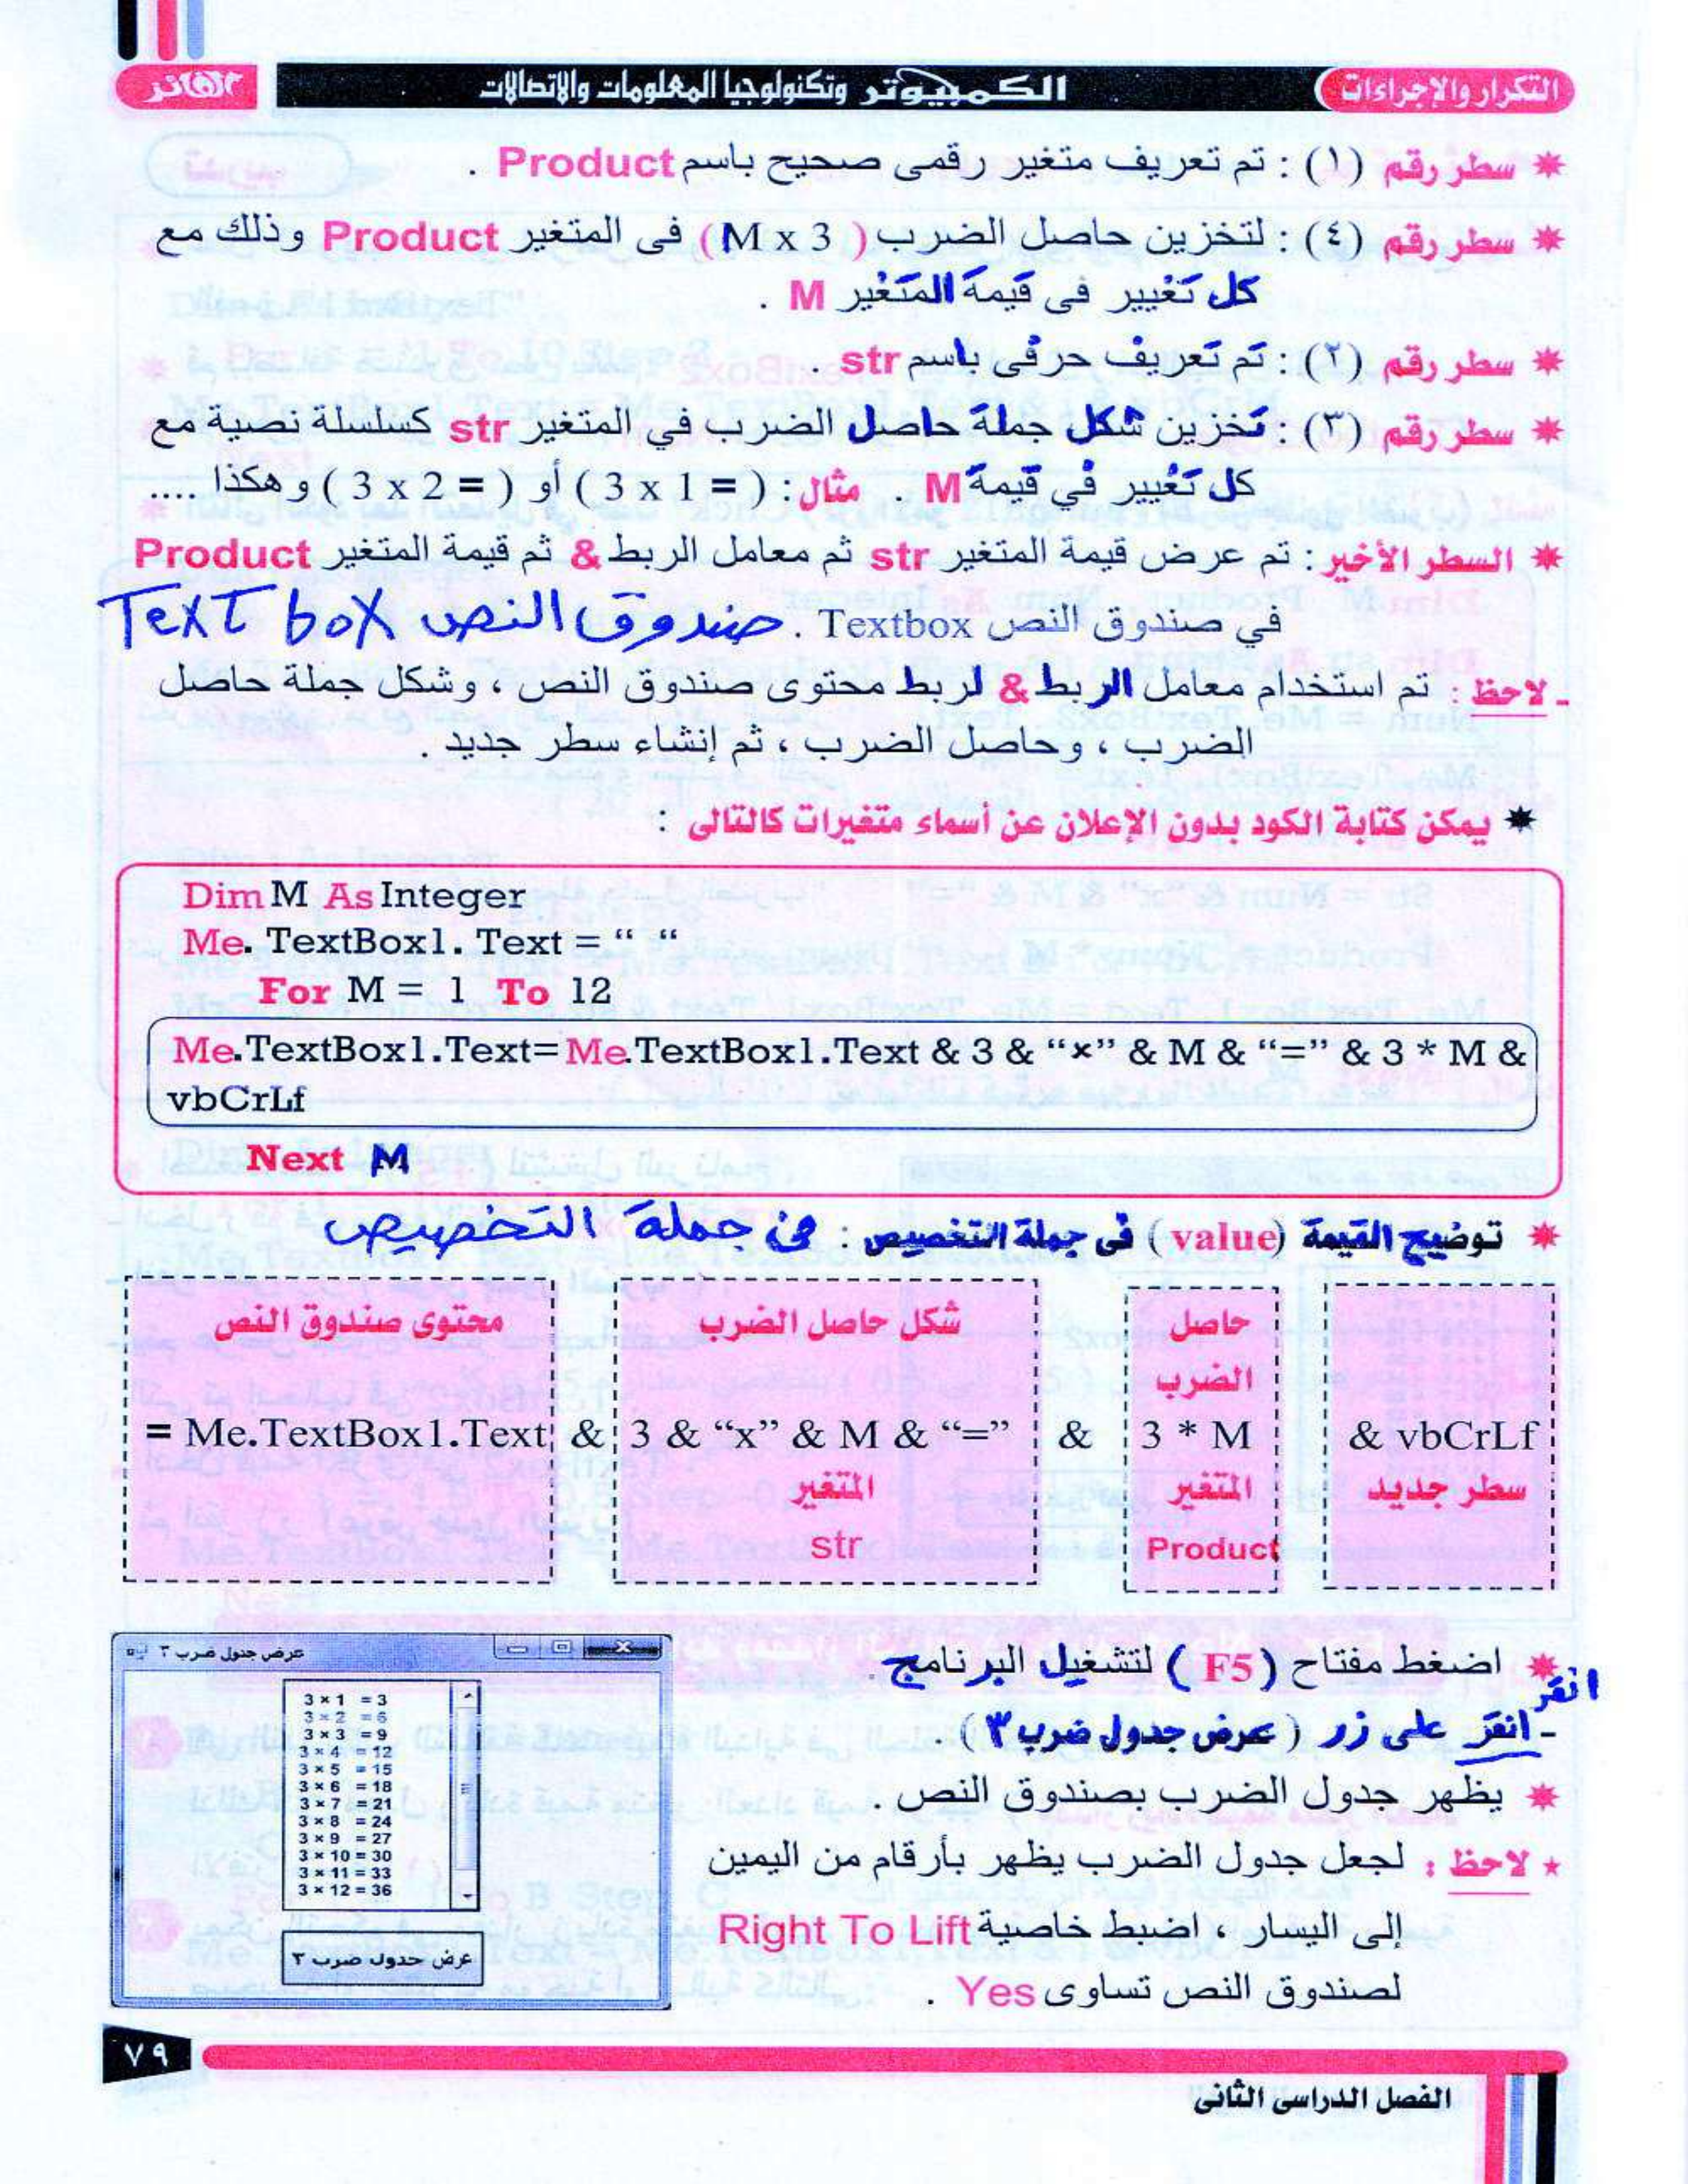 التكرار والإجراءات
الكمبيوتر وتكنولوجيا المعلومات والاتصالات
الفائز
* سطر رقم (١) : تم تعريف متغير رقمى صحيح باسم Product .
* سطر رقم (٤) : لتخزين حاصل الضرب ( M x 3 ) فى المتغير Product وذلك مع
كل تغيير فى قيمة المتغير M .
* سطر رقم (٢) : تم تعريف حرفى باسم str .
* سطر رقم (٣) : تخزين شكل جملة حاصل الضرب في المتغير str كسلسلة نصية مع
كل تغيير في قيمة M . مثال : ( 3 x 1 = ) أو ( 3 x 2 = ) وهكذا ....
* السطر الأخير : تم عرض قيمة المتغير str ثم معامل الربط & ثم قيمة المتغير Product
في صندوق النص Textbox . صندوق النص Text box
- لاحظ : تم استخدام معامل الربط & لربط محتوى صندوق النص ، وشكل جملة حاصل
الضرب ، وحاصل الضرب ، ثم إنشاء سطر جديد .
* يمكن كتابة الكود بدون الإعلان عن أسماء متغيرات كالتالى :
Dim M As Integer
Me. TextBox1. Text = “ “
For M = 1 To 12
Me.TextBox1.Text= Me.TextBox1.Text & 3 & “×” & M & “=” & 3 * M &
vbCrLf
Next M
* توضيح القيمة (value) فى جملة التخصيص : فى جملة التخصيص
محتوى صندوق النص شكل حاصل الضرب حاصل
الضرب
= Me.TextBox1.Text & 3 & “x” & M & “=” & 3 * M & vbCrLf
المتغير المتغير سطر جديد
str Product
* اضغط مفتاح ( F5 ) لتشغيل البرنامج .
انقر
- انقر على زر ( عرض جدول ضرب ٣ ) .
* يظهر جدول الضرب بصندوق النص .
* لاحظ : لجعل جدول الضرب يظهر بأرقام من اليمين
إلى اليسار ، اضبط خاصية Right To Lift
لصندوق النص تساوى Yes .
عرض جدول ضرب ٣
3 × 1 = 3
3 × 2 = 6
3 × 3 = 9
3 × 4 = 12
3 × 5 = 15
3 × 6 = 18
3 × 7 = 21
3 × 8 = 24
3 × 9 = 27
3 × 10 = 30
3 × 11 = 33
3 × 12 = 36
عرض جدول ضرب ٣
٧٩
الفصل الدراسى الثانى